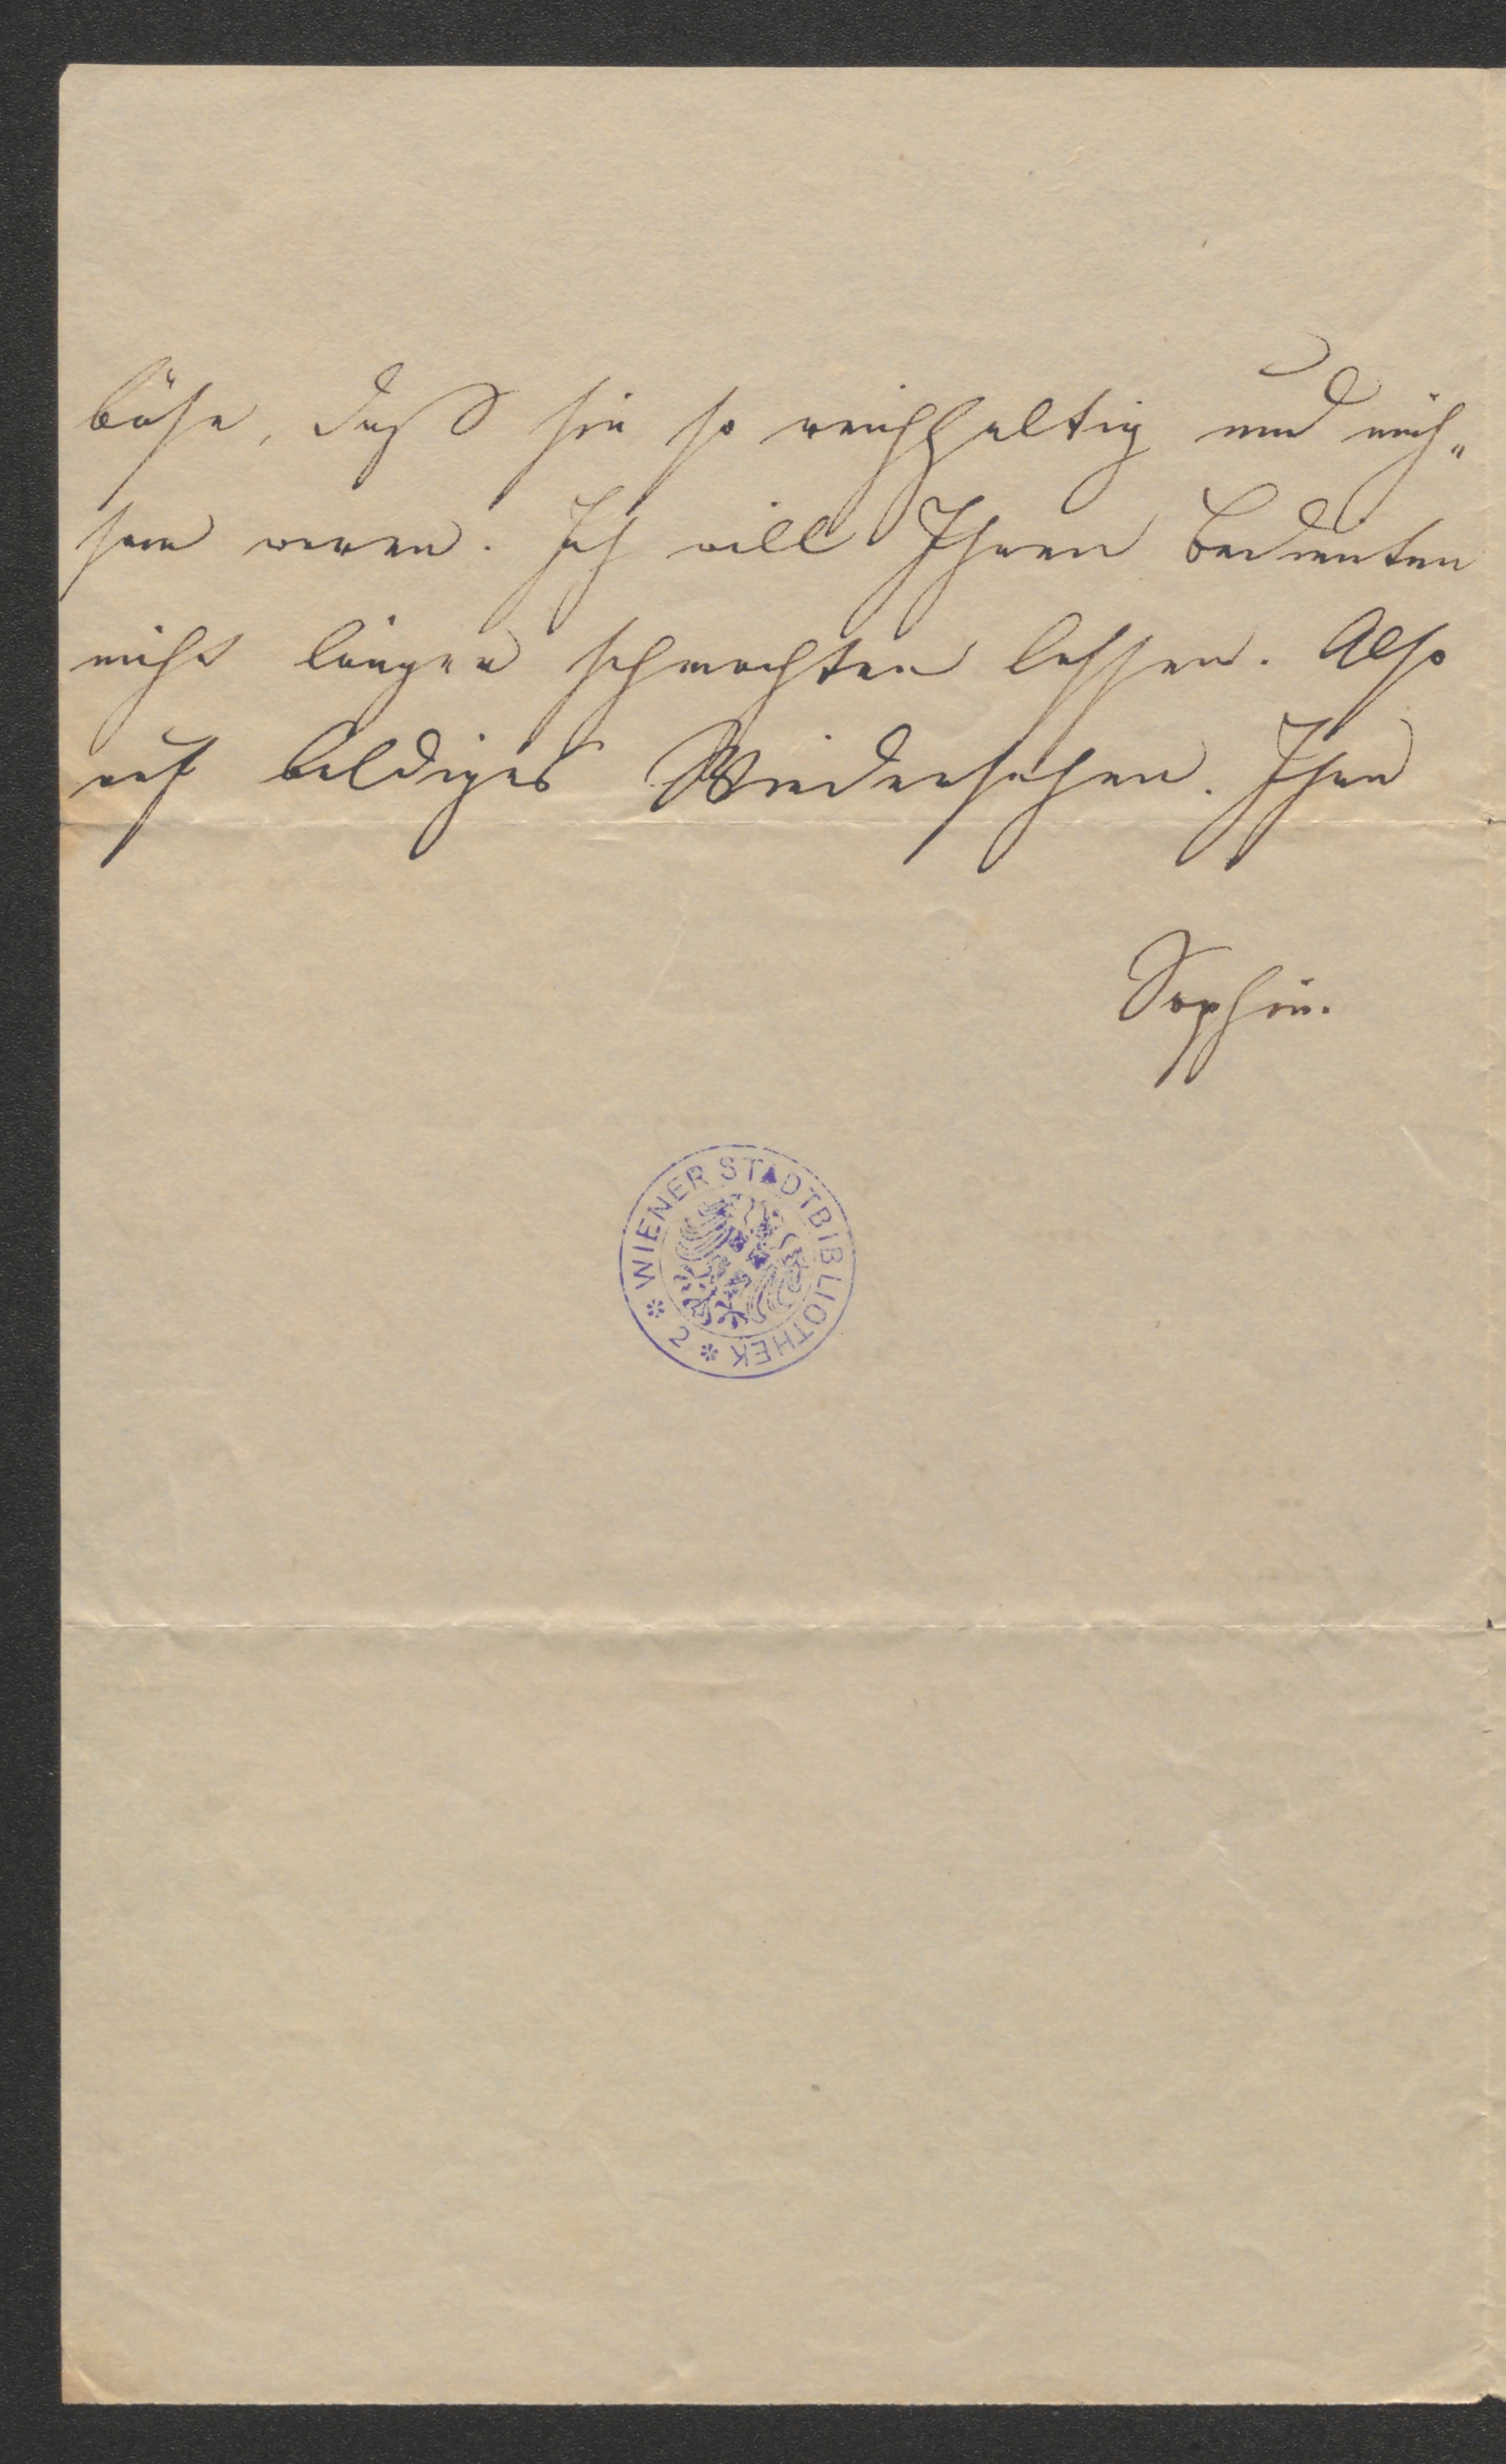 böse, daß sie so reichhaltig und müh„
sam waren. Ich will Ihren Bedienten
nicht länger schmachten lassen. Also
auf baldiges Wiedersehen. Ihre
Sophie.
WIENER STADTBIBLIOTHEK
2